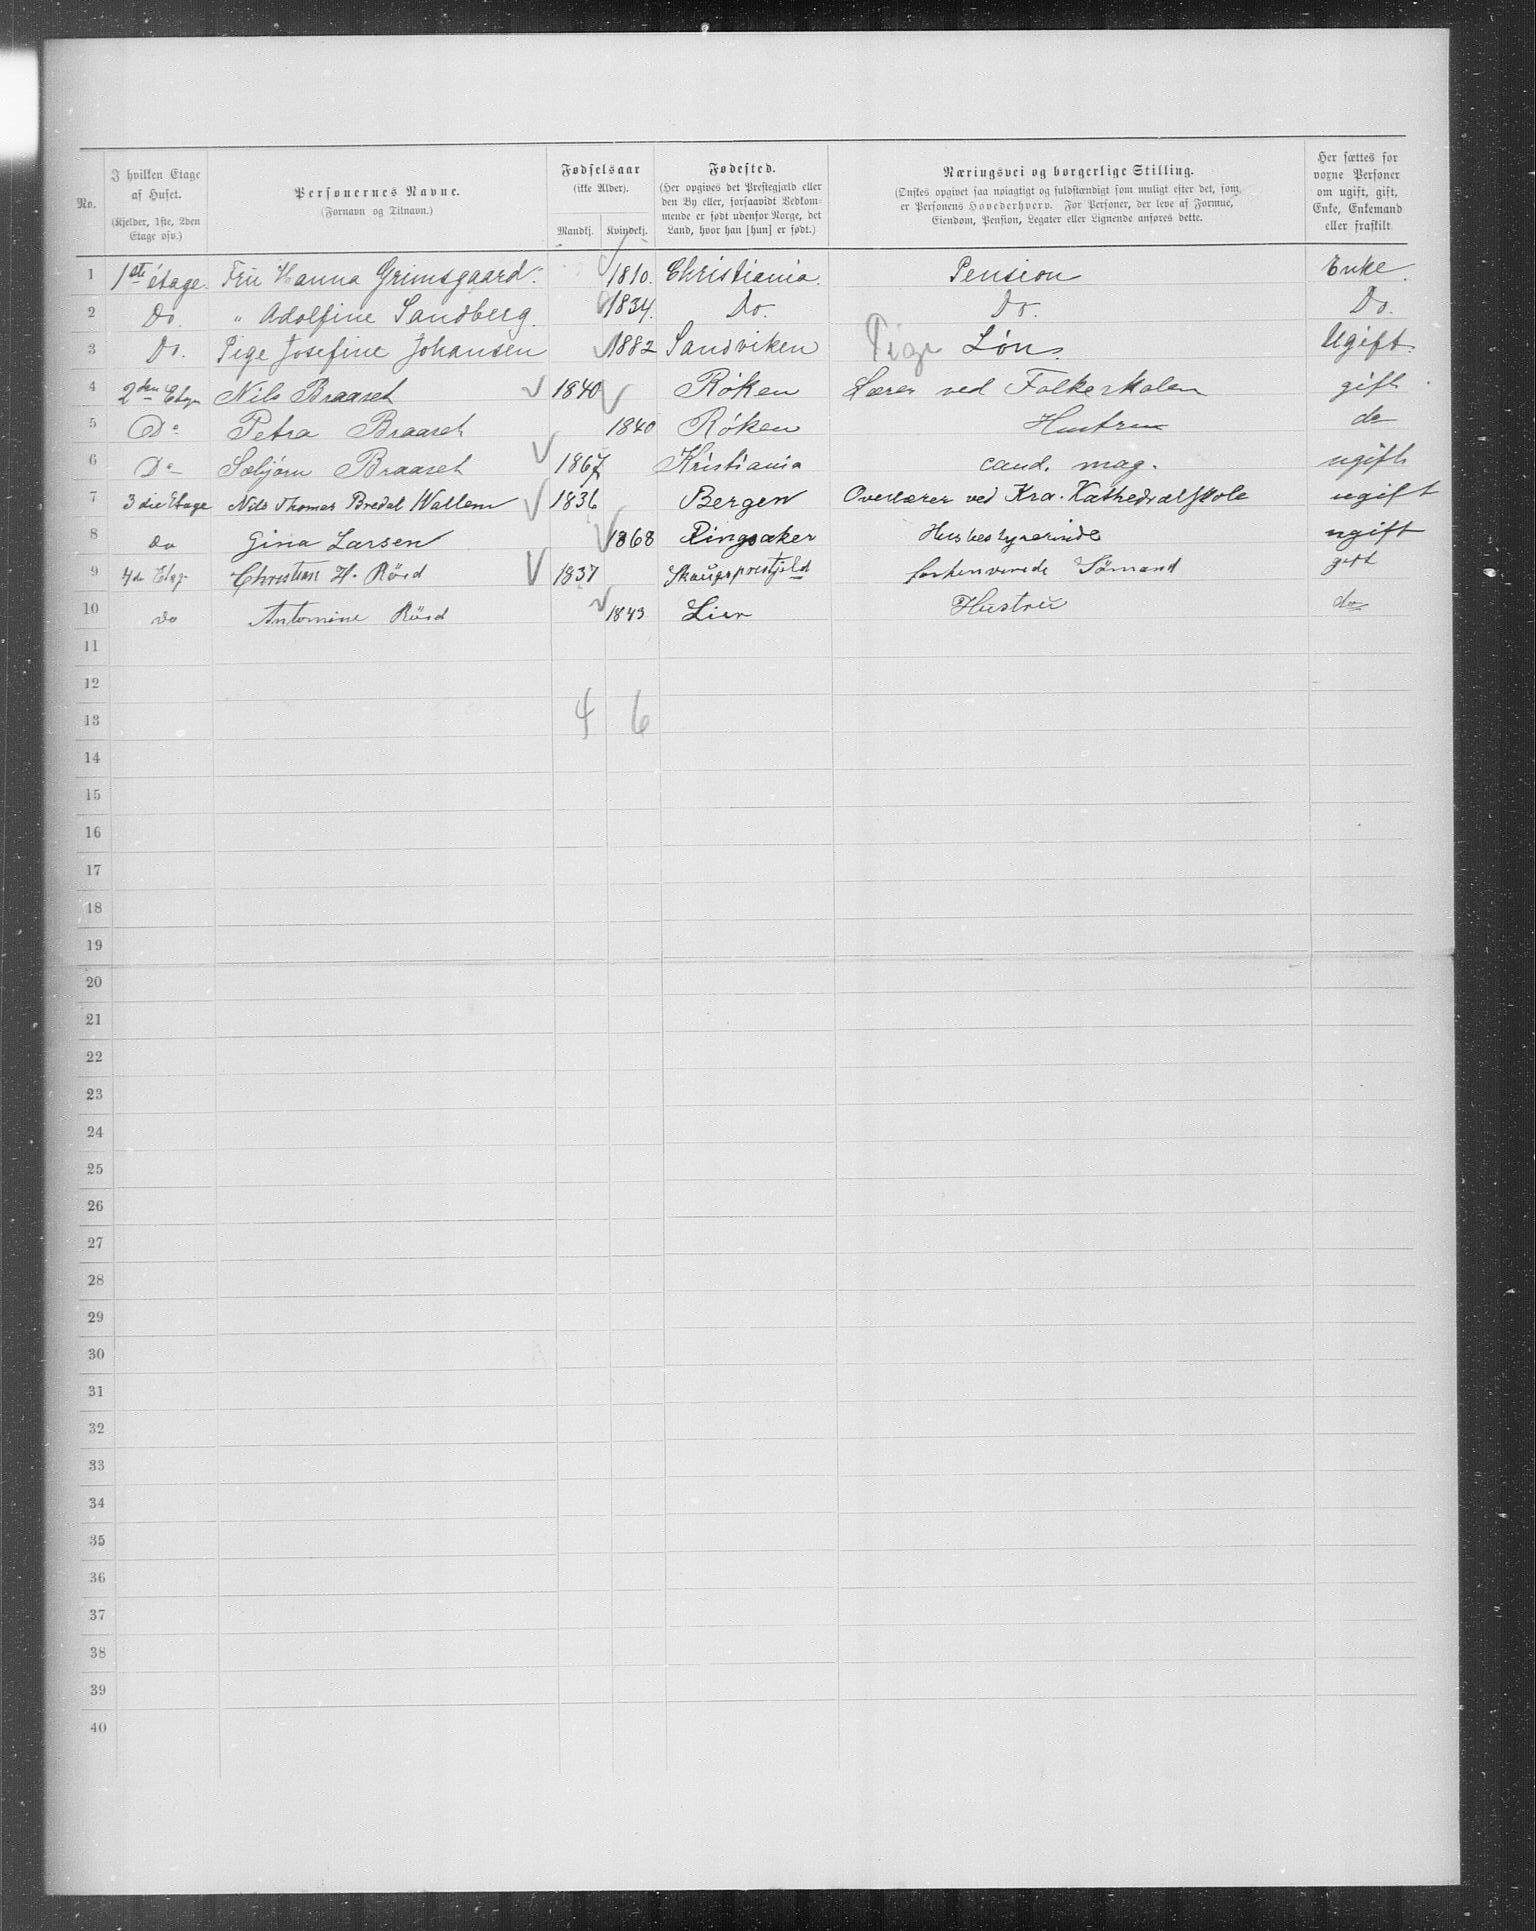 No. I hvilken Etage af Huset. (Kjelder, 1ste, 2den Etage osv.) Personernes Navne. (Fornavn og Tilnavn.) Fødselsaar (ikke Alder). Mandkj. Kvindekj. Fødested. (Her opgives det Prestegjæld eller den By eller, forsaavidt Vedkommende er født udenfor Norge, det Land, hvor han [hun] er født.) Næringsvei og borgerlige Stilling. (Ønskes opgivet saa nøiagtigt og fuldstændigt som muligt efter det, som er Personens Hovederhverv. For Personer, der leve af Formue, Eiendom, Pension, Legater eller Lignende anføres dette. Her sættes for voxne Personer om ugift, gift, Enke, Enkemand eller fraskilt
1 1ste étage. Fru Hanna Grimsgaard. 1810. Christiania. Pension Enke.
2 Do. " Adolfine Sandberg. 1834. Do. Do. Do.
3 Do. Pige Josefine Johansen 1882 Sandviken Pige Løn. Ugift.
4 2den Etage Nils Braaset 1840 Røken Lærer ved Folkeskolen gift
5 Do Petra Braaset 1840 Røken Hustru do
6 Do Braaset 1867 Kristiania cand. mag. ugift
7 3die Etage Nils Thomas Bredal Wallem 1836 Bergen Overlærer ved Kra. Kathedralskole ugift
8 do Gina Larsen 1868 Ringsaker Husbestyrerinde ugift
9 4de Etag. Christian H. Röed 1837 forhenverede Sömand gift
10 do Antomine Röed 1843 Lier Hustru do
11
12
13 4 6
14
15
16
17
18
19
20
21
22
23
24
25
26
27
28
29
30
31
32
33
34
35
36
37
38
39
40